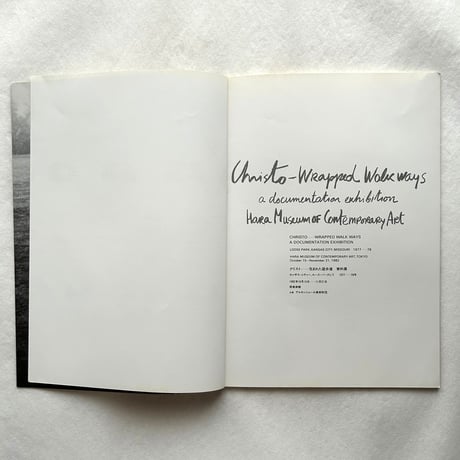 Christo – Wrapped Walk Ways
a documentation exhibition
Hara Museum of Contemporary Art
CHRISTO : WRAPPED WALK WAYS
A DOCUMENTATION EXHIBITION
LOOSE PARK, KANSAS CITY, MISSOURI 1977–78
HARA MUSEUM OF CONTEMPORARY ART, TOKYO
October 15–November 21, 1982
1977–1978
原美術館